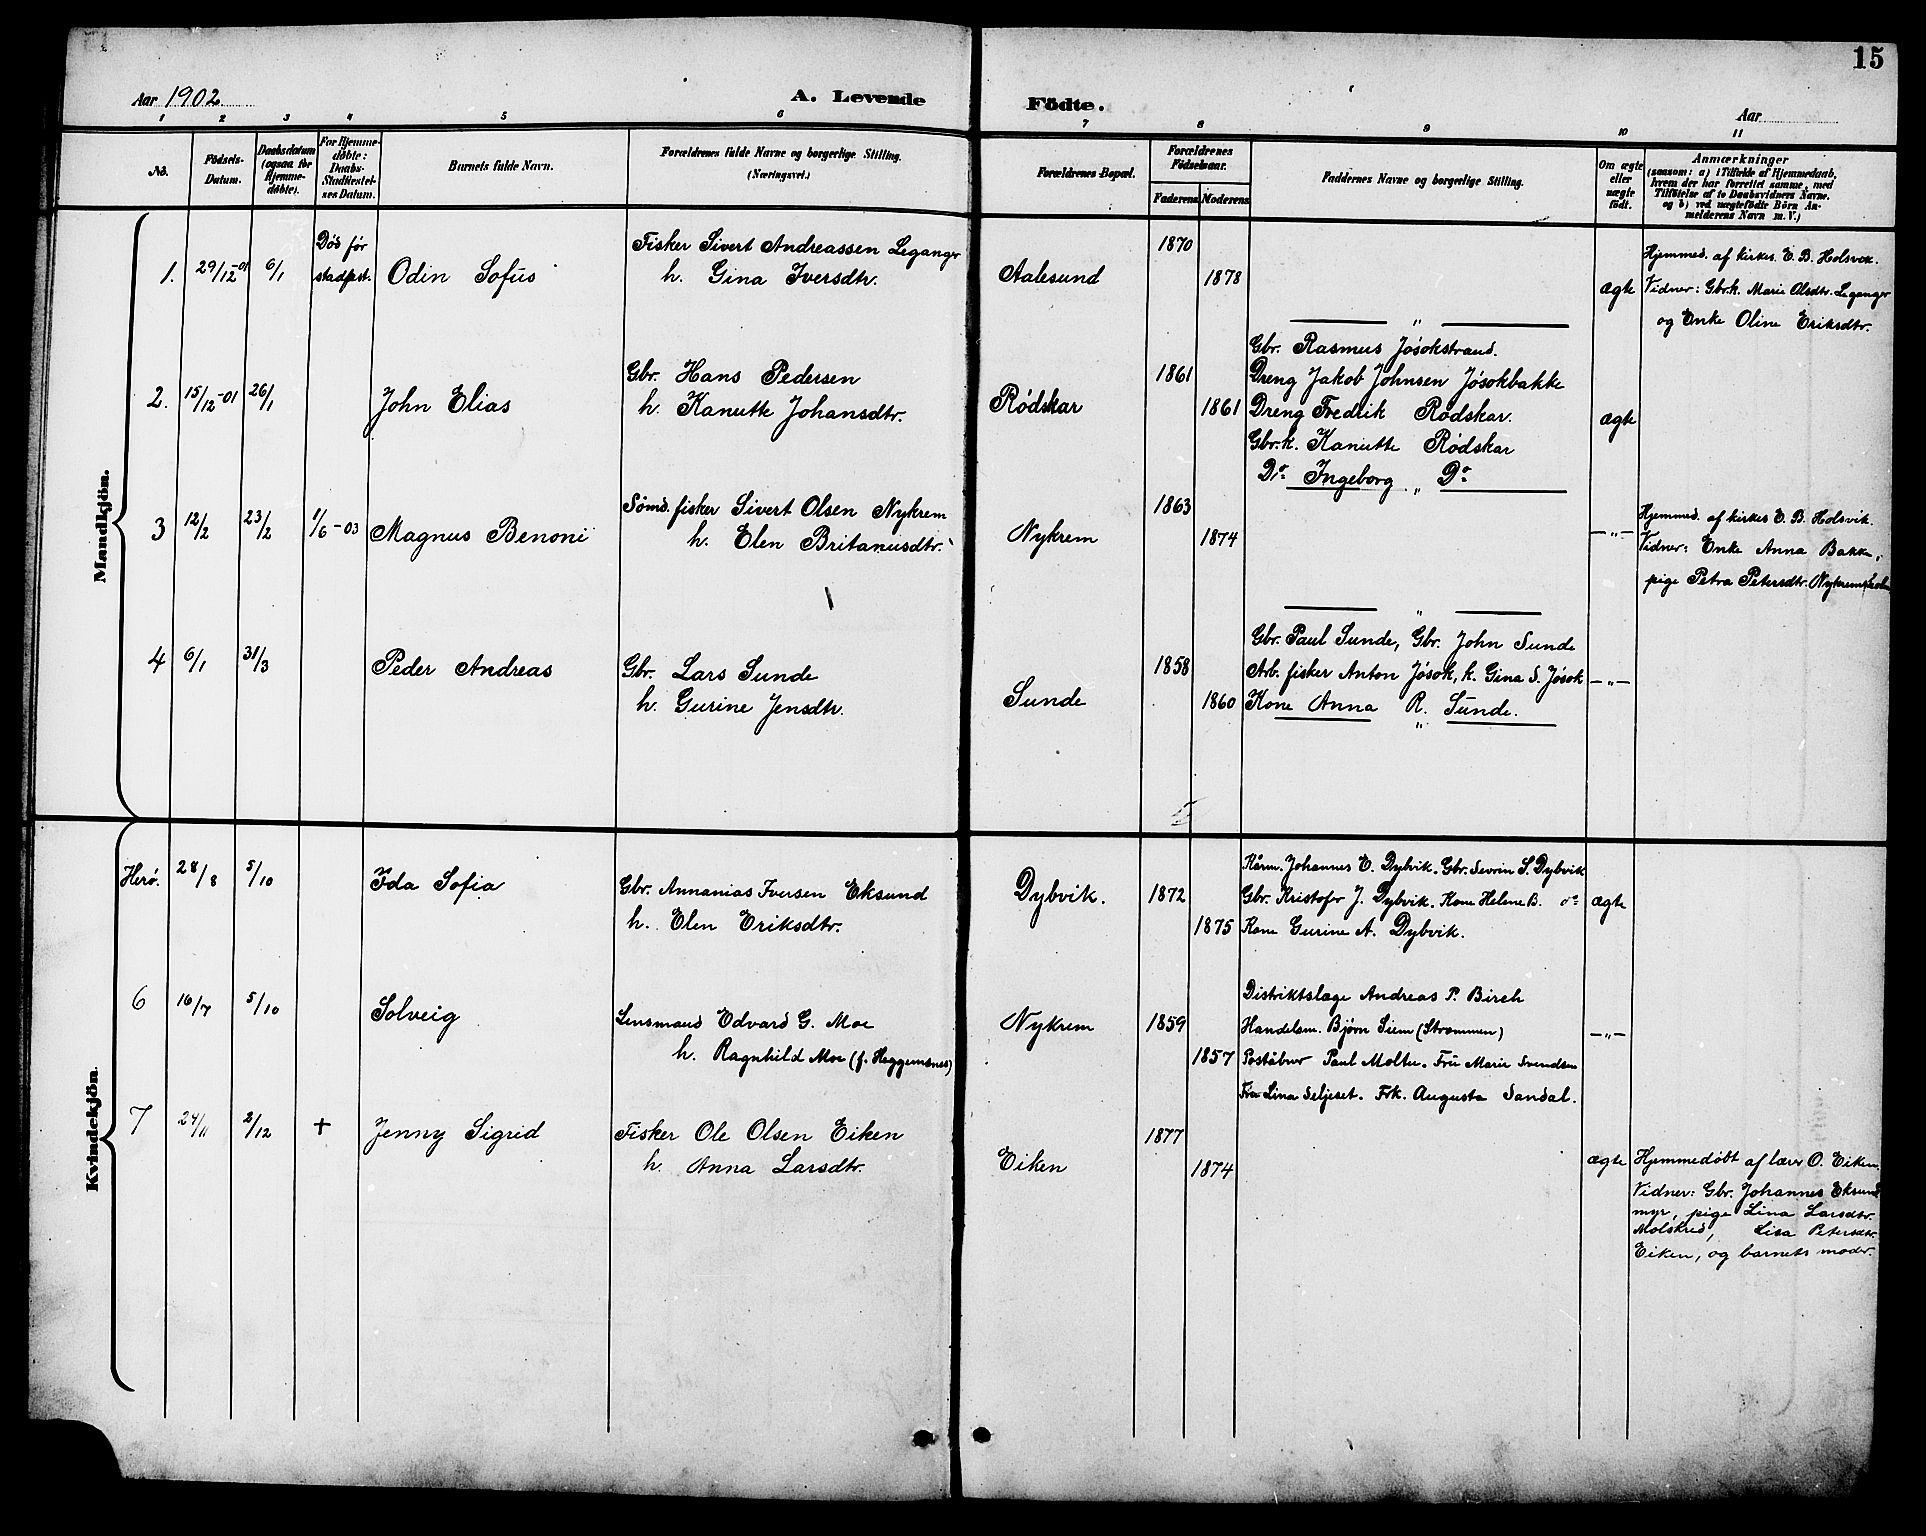 15
Aar 1902
A. Levende
Födte.
Aar
1 2 3 4 5 6 7 8 9 10 11
No.
Födsels-Datum.
Daabsdatum (ogsaa for Hjemme-döbte).
For Hjemme-döbte: Daabs-Stadfæstel-ses Datum.
Barnets fulde Navn.
Forældrenes fulde Navne og borgerlige Stilling.
(Næringsvei.)
Forældrenes Bopæl.
Forældrenes Födselsaar.
Faderens Moderens
Faddernes Navne og borgerlige Stilling.
Om ægte eller uægte födt.
Anmærkninger
(saasom: a) i Tilfælde af Hjemmedaab, hvem der har forrettet samme, med Tilföielse af to Daabsvidners Navne. og b) ved uægtefödte Börn An-melderens Navn m. V.)
Mandkjön.
1. 29/12-01 6/1 Död før stadfest. Odin Sofus
Fisker Sivert Andreassen Leganger
h. Gina Iversdtr.
Aalesund 1870 1878
ægte
Hjemmed. af kirkes. E. B. Holsvik.
Vidner: Gbr.k. Marie Olsdtr. Leganger
og Enke Oline Eriksdtr.
2. 15/12-01 26/1 John Elias
Gbr. Hans Pedersen
h. Kanutte Johansdtr.
Rødskar 1861 1861
Gbr. Rasmus Jøsokstrand.
Dreng Jakob Johnsen Jøsokbakke
Dreng Fredrik Rødskar.
Gbr.k. Kanutte Rødskar
Do. Ingeborg Do
ægte
3 12/2 23/2 1/6-03 Magnus Benoni
Sømd. fisker Sivert Olsen Nykrem
h. Elen Britanusdtr.
Nykrem 1863 1874
—„—
Hjemmed. af kirkes E. B. Holsvik.
Vidner: Enke Anna Bakke,
pige Petra Petersdtr. Nykrem
4 6/1 31/3 Peder Andreas
Gbr. Lars Sunde
h. Gurine Jensdtr.
Sunde 1858 1860
Gbr. Paul Sunde, Gbr. John Sunde
Arb. fisker Anton Jøsok, k. Gina S. Jøsok
Kone Anna R. Sunde.
—„—
Kvindekjön.
Herø. 28/8 5/10 Ida Sofia
Gbr. Annanias Iversen Eksund
h. Elen Eriksdtr.
Dybvik. 1872 1875
Kårm. Johannes E. Dybvik. Gbr. Sevrin S. Dybvik
Gbr. Kristofer J. Dybvik. Kone Helene B. do
Kone Gurine A. Dybvik.
ægte
6 16/7 5/10 Solveig
Lensmand Edvard G. Moe
h. Ragnhild Moe (f. Heggemsnes)
Nykrem 1859 1857
Distriktslæge Andreas P. Birch
Handelsm. Bjørn Siem (Strømmen)
Poståbner Paul Moltu. Frü Marie Svendsen
Frü Lina Seljeset. Frk. Augusta Sandal.
—„—
7 24/11 2/12 + Jenny Sigrid
Fisker Ole Olsen Eiken
h. Anna Larsdtr.
Eiken 1877 1874
ægte
Hjemmedøbt af lærer O. Eiken.
Vidner: Gbr. Johannes Eksund
myr, pige Lina Larsdtr.
Molskred, Lisa Petersdtr.
Eiken, og barnets moder.